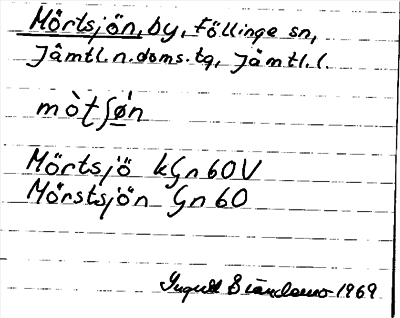 Mörtsjön, by, Föllinge sn,
Jämtl. n. doms. tg, Jämtl. l.
mòtʃø̀n
Mörtsjö kGn 60 V
Mörstsjön Gn 60
1969